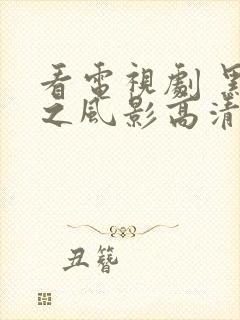 看電視劇 黑
之風影高清
丑簪